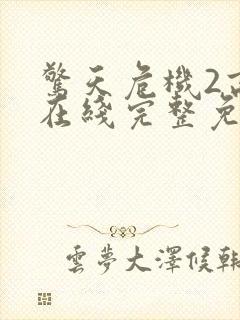 驚天危機2高
在綫完整免
雲夢大澤候韓